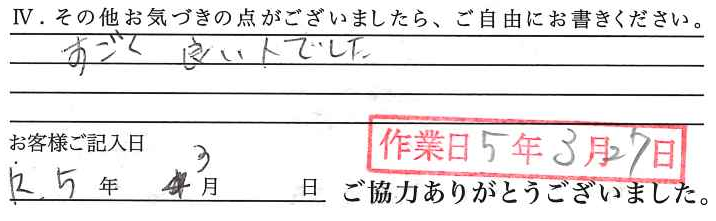 Ⅳ．その他お気づきの点がございましたら、ご自由にお書きください。
すごく 良い人でした
お客様ご記入日
作業日 5年 3月27日
R.5年 3月 日 ご協力ありがとうございました。